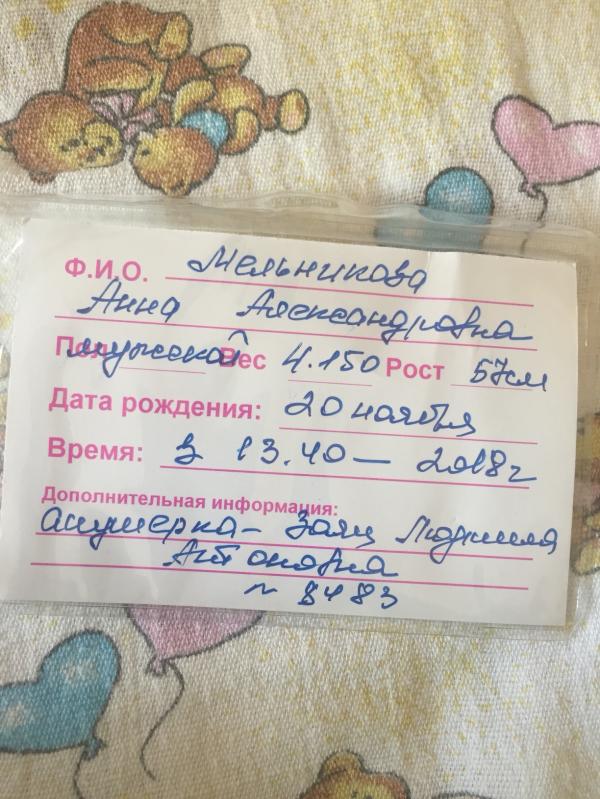 Ф.И.О. Мельникова
Анна Александровна
Пол мужской Вес 4.150 Рост 57см
Дата рождения: 20 ноября
Время: в 13.40 — 2018г
Дополнительная информация:
акушерка – Заяц Людмила
Антоновна
№ 8483